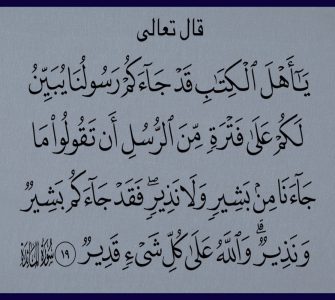 قال تعالى
يَـٰٓأَهْلَ ٱلْكِتَـٰبِ قَدْ جَآءَكُمْ رَسُولُنَا يُبَيِّنُ
لَكُمْ عَلَىٰ فَتْرَةٍ مِّنَ ٱلرُّسُلِ أَن تَقُولُوا۟ مَا
جَآءَنَا مِنۢ بَشِيرٍ وَلَا نَذِيرٍ ۖ فَقَدْ جَآءَكُم بَشِيرٌ
وَنَذِيرٌ ۗ وَٱللَّهُ عَلَىٰ كُلِّ شَىْءٍ قَدِيرٌ ١٩ سورة المائدة